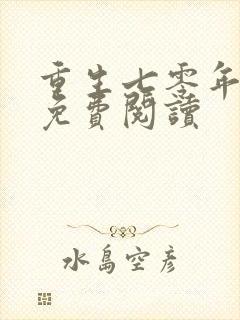 重生七零年
免費閱讀
水島空彥